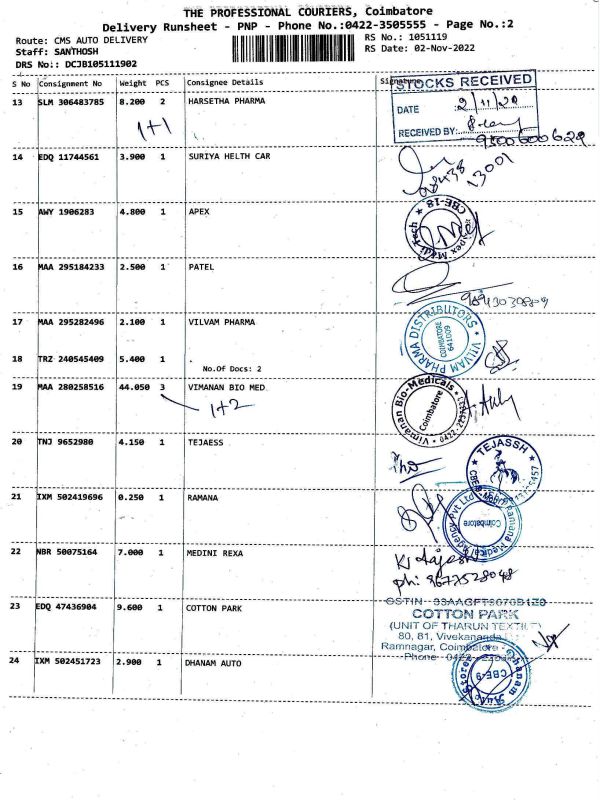 THE PROFESSIONAL COURIERS, Coimbatore
Delivery Runsheet - PNP - Phone No.:0422-3505555 - Page No.:2
Route: CMS AUTO DELIVERY
Staff: SANTHOSH
DRS No:: DCJB105111902
RS No.: 1051119
RS Date: 02-Nov-2022
S No Consignment No Weight PCS Consignee Details Signature
13 SLM 306483785 8.200 2 HARSETHA PHARMA
1+1
STOCKS RECEIVED
DATE 2/11/22
RECEIVED BY:
9500600629
14 EDQ 11744561 3.900 1 SURIYA HELTH CAR
15 AWY 1906283 4.800 1 APEX
CBE-18
16 MAA 295184233 2.500 1 PATEL
17 MAA 295282496 2.100 1 VILVAM PHARMA
VILVAM PHARMA DISTRIBUTORS
COIMBATORE
641009
18 TRZ 240545409 5.400 1
No.Of Docs: 2
19 MAA 280258516 44.050 3 VIMANAN BIO MED
1+2
Vimanan Bio-Medicals
Coimbatore
20 TNJ 9652980 4.150 1 TEJAESS
TEJASSH
21 IXM 502419696 0.250 1 RAMANA
Ramana Medical Agency Pvt Ltd
Coimbatore
22 NBR 50075164 7.000 1 MEDINI REXA
K Rajesh
Ph: 8677528048
23 EDQ 47436904 9.600 1 COTTON PARK
COTTON PARK
(UNIT OF THARUN TEXTILE)
80, 81, Vivekananda
Ramnagar, Coimbatore
Phone 0422
24 IXM 502451723 2.900 1 DHANAM AUTO
Dhanam Auto Stores
CBE-9